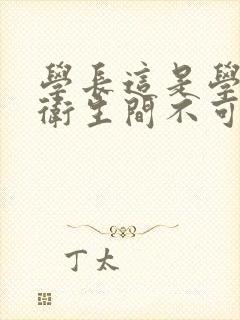 學長這是學
衛生間不可
丁太